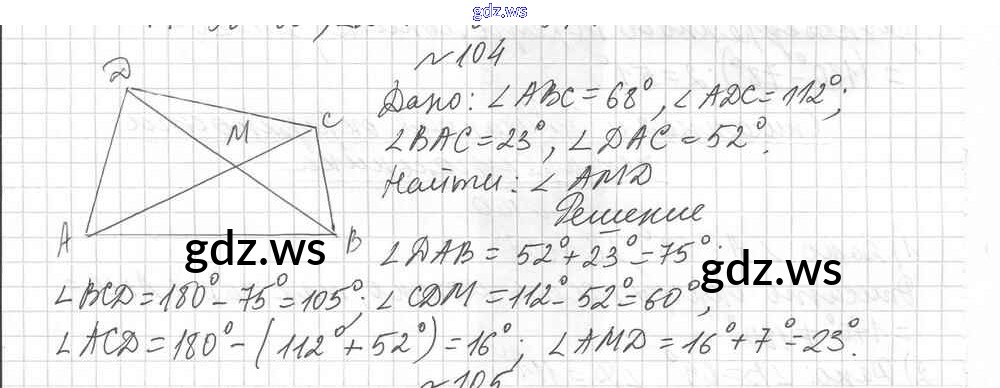 gdz.ws
№104
D
C
M
A
B
Дано: ∠ABC = 68°, ∠ADC = 112°;
∠BAC = 23°, ∠DAC = 52°.
Найти: ∠AMD
Решение
∠DAB = 52° + 23° = 75°;
gdz.ws
gdz.ws
∠BCD = 180° - 75° = 105°; ∠CDM = 112° - 52° = 60°;
∠ACD = 180° - (112° + 52°) = 16°; ∠AMD = 16° + 7° = 23°.
№105